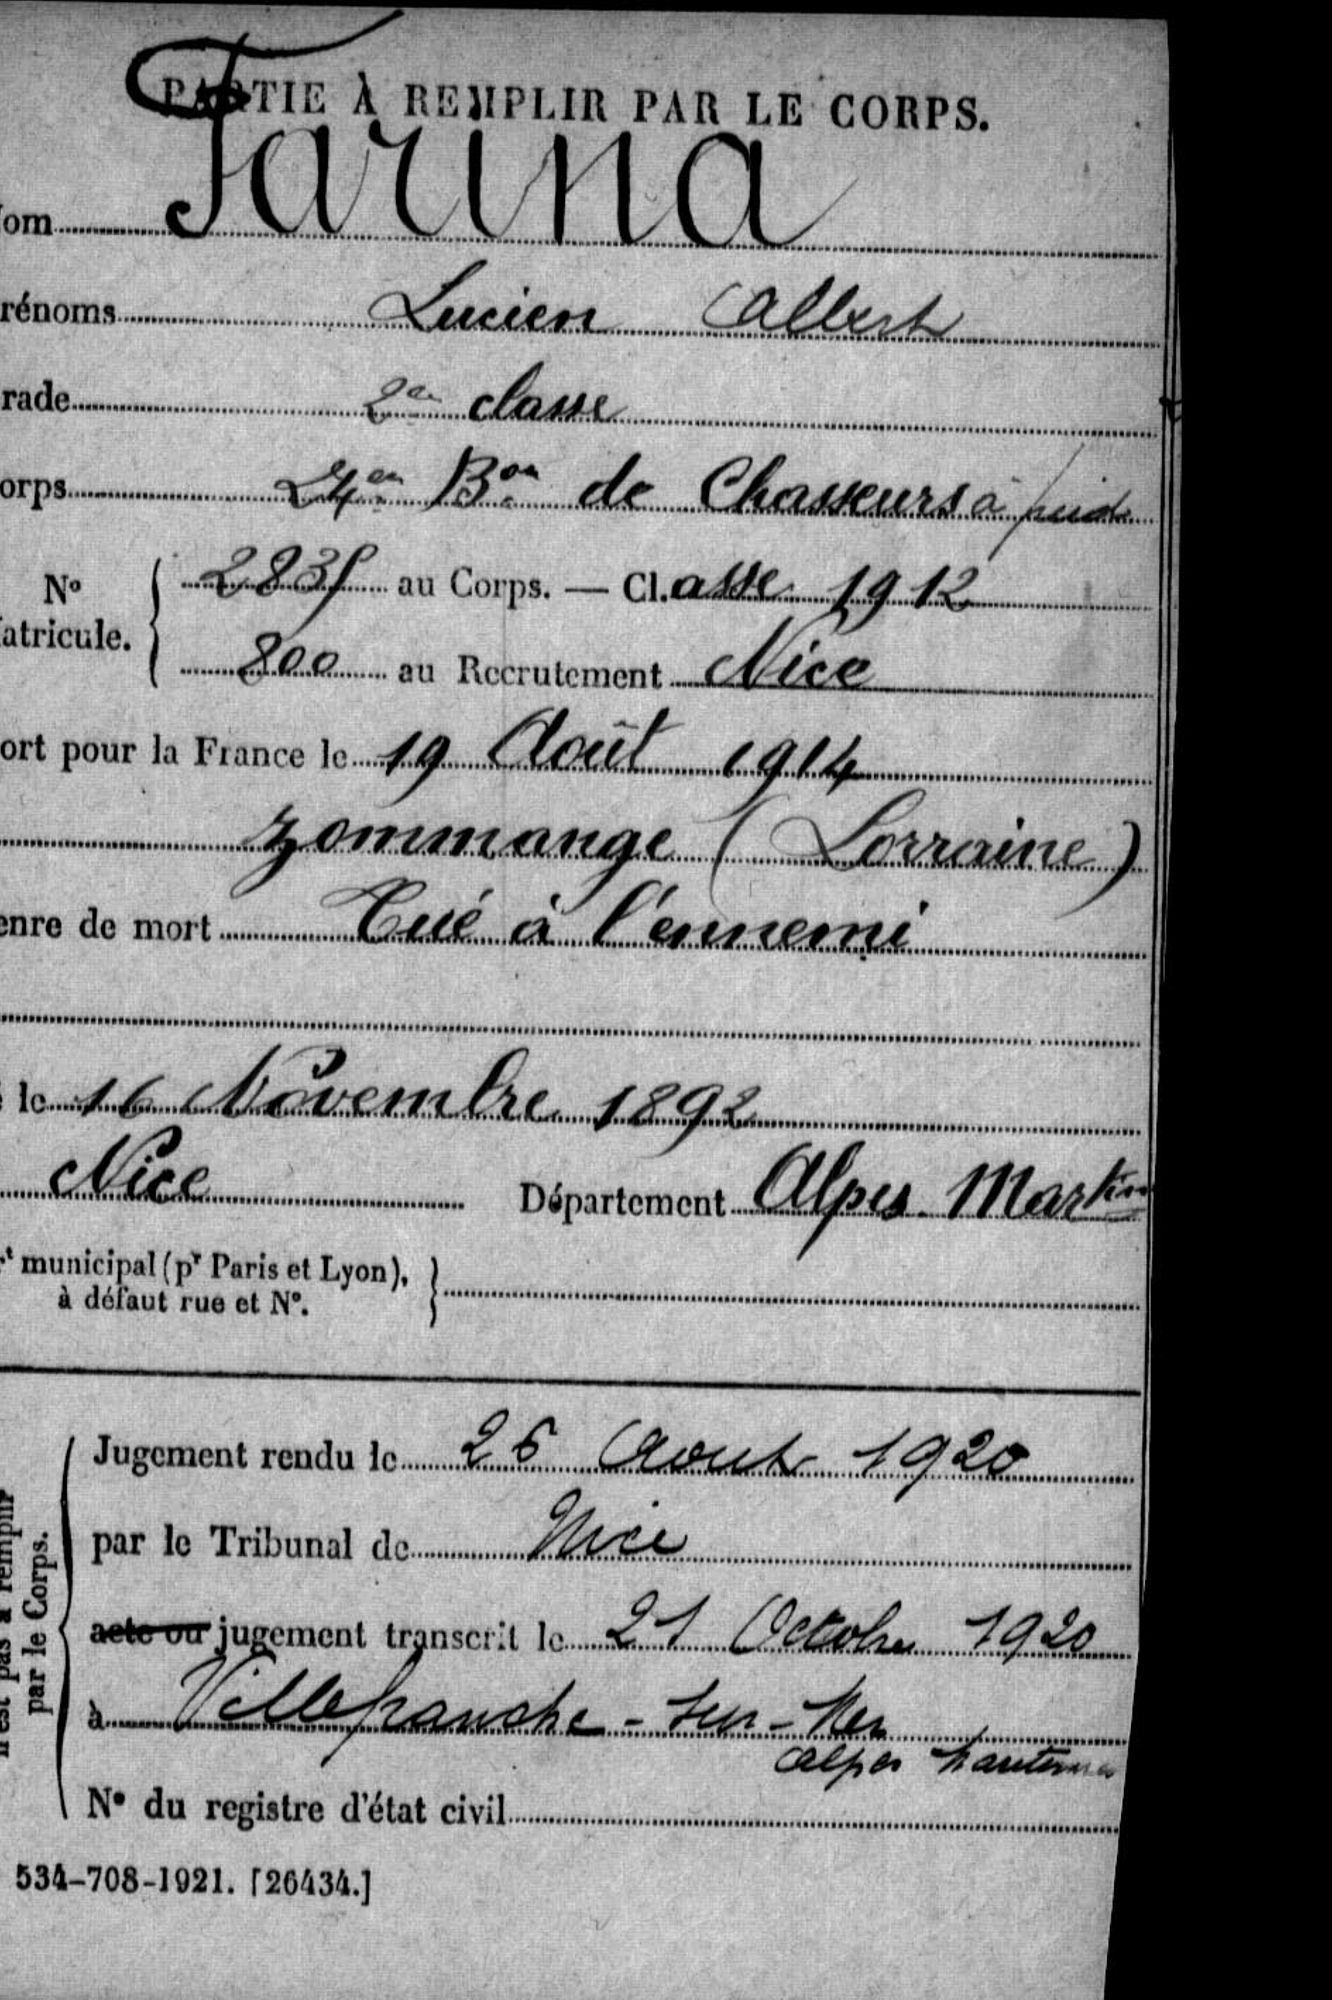 PARTIE À REMPLIR PAR LE CORPS.
om Farina
rénoms Lucien Albert
rade 2e classe
orps 24e Bon de Chasseurs à pied
No
atricule.
au Corps. — Cl.asse 1912
800 au Recrutement Nice
ort pour la France le 19 Août 1914
Zommange (Lorraine)
enre de mort Tué à l'ennemi
le 16 Novembre 1892
Nice Département Alpes Martimes
rt municipal (pr Paris et Lyon),
à défaut rue et No.
n'est pas à remplir
par le Corps.
Jugement rendu le 26 Aout 1920
par le Tribunal de Nice
acte ou jugement transcrit le 21 Octobre 1920
à Villefranche-sur-Mer
Alpes Maritimes
No du registre d'état civil
534-708-1921. [26434.]